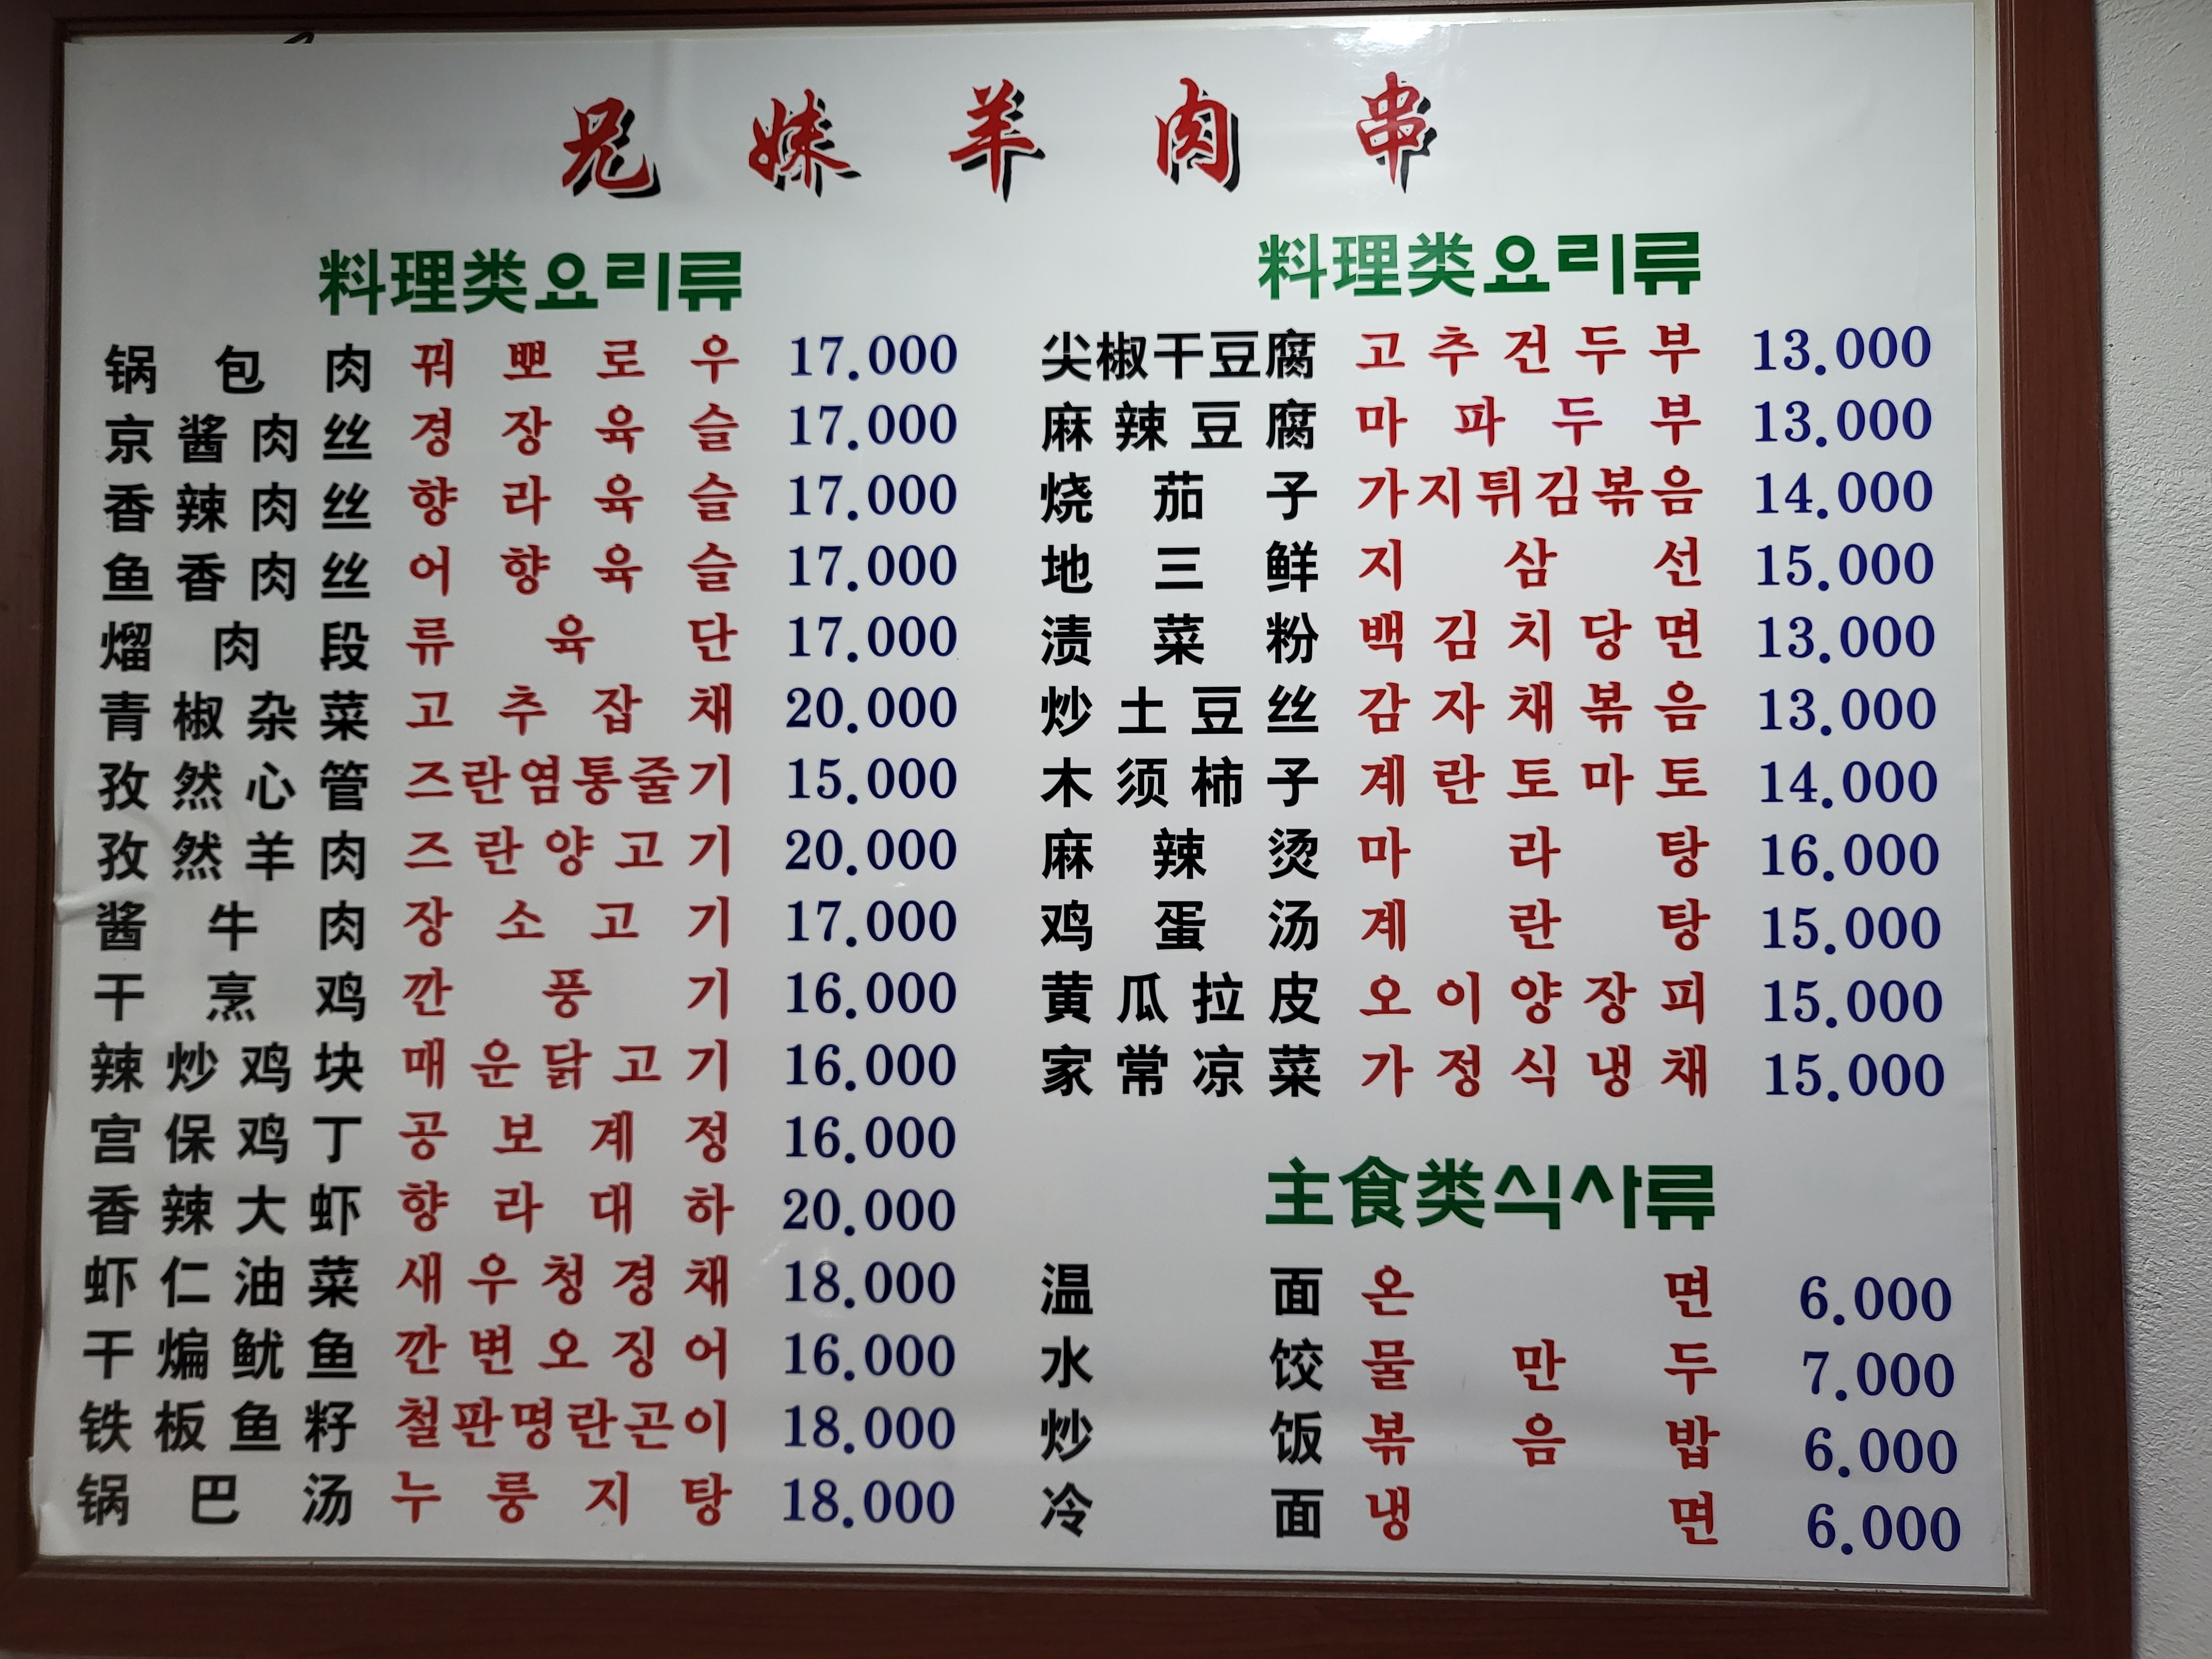 兄妹羊肉串
料理类요리류
锅包肉 꿔뽀로우 17.000
京酱肉丝 경장육슬 17.000
香辣肉丝 향라육슬 17.000
鱼香肉丝 어향육슬 17.000
熘肉段 류육단 17.000
青椒杂菜 고추잡채 20.000
孜然心管 즈란염통줄기 15.000
孜然羊肉 즈란양고기 20.000
酱牛肉 장소고기 17.000
干烹鸡 깐풍기 16.000
辣炒鸡块 매운닭고기 16.000
宫保鸡丁 공보계정 16.000
香辣大虾 향라대하 20.000
虾仁油菜 새우청경채 18.000
干煸鱿鱼 깐변오징어 16.000
铁板鱼籽 철판명란곤이 18.000
锅巴汤 누룽지탕 18.000
料理类요리류
尖椒干豆腐 고추건두부 13.000
麻辣豆腐 마파두부 13.000
烧茄子 가지튀김볶음 14.000
地三鲜 지삼선 15.000
渍菜粉 백김치당면 13.000
炒土豆丝 감자채볶음 13.000
木须柿子 계란토마토 14.000
麻辣烫 마라탕 16.000
鸡蛋汤 계란탕 15.000
黄瓜拉皮 오이양장피 15.000
家常凉菜 가정식냉채 15.000
主食类식사류
温面 온면 6.000
水饺 물만두 7.000
炒饭 볶음밥 6.000
冷面 냉면 6.000